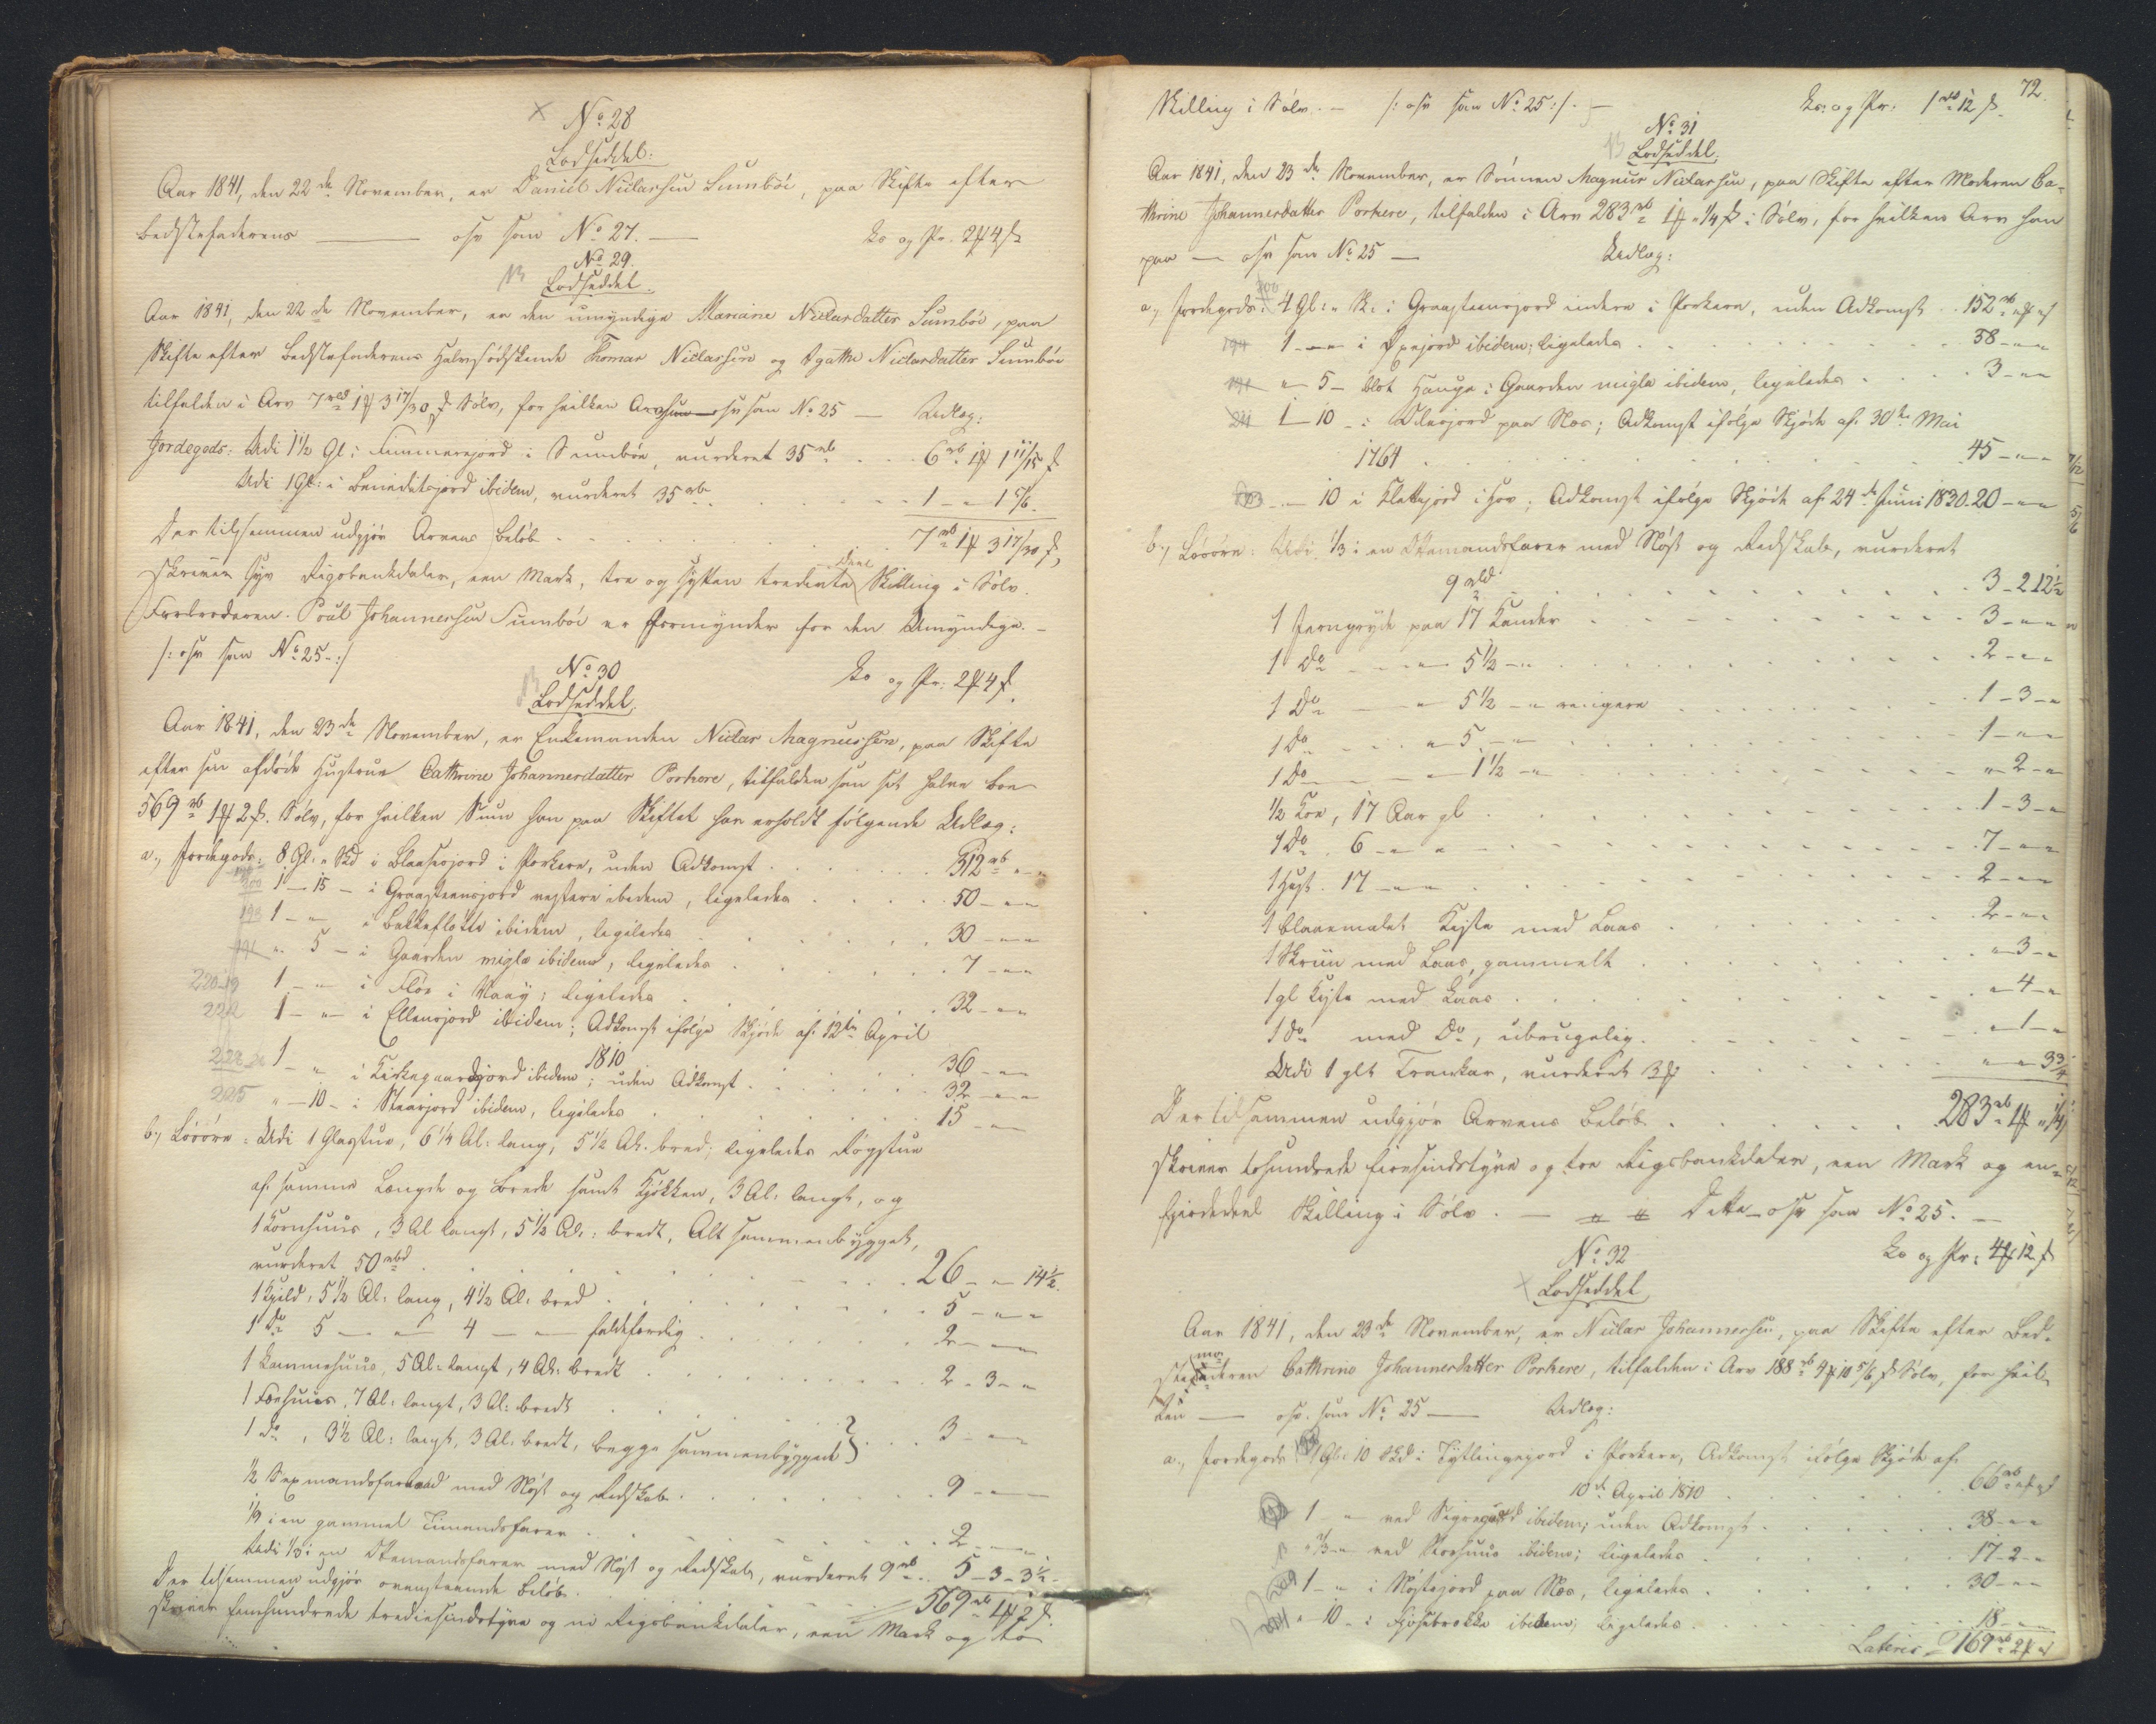 No 28
Lodseddel.
Aar 1841, den 22de November, er Daniel Niclassen Sumböe, paa Skifte efter
Bedstefaderens — osv som No 27. — Ls og Pr. 2 4
No 29.
Lodseddel.
Aar 1841, den 22de November, er den umyndige Mariane Niclasdatter Sumböe, paa
Skifte efter Bedstefaderens Halvsödskende Thomas Niclassen og Agathe Niclasdatter Sumböe
tilfalden i Arv 7 rbd 1 3 17/30 Sölv, for hvilken Arv osv som No 25 — Udlæg:
Jordegods: Udi 1 1/2 Gl: i Simmerejord i Sumböe, vurderet 35 rb . . 6 rb 1 1 11/15
Udi 1 Gl: i Benedictsjord ibidem, vurderet 35 rb . . . 1 - " 1 5/6.
Der tilsammen udgjör Arvens Belöb . . . 7 rb 1 3 17/30
skriver syv Rigsbankdaler, een Mark, tre og sytten tredivte deel Skilling i Sölv.
Farbroderen Poul Johannessen Sumböe er Formynder for den Umyndige. —
/: osv som No 25 :/ Ls og Pr: 2 4
No 30
Lodseddel.
Aar 1841, den 23de November, er Enkemanden Niclas Magnussen, paa Skifte
efter sin afdöde Hustrue Cathrine Johannesdatter Porkere, tilfalden som sit halve Boe
569 rb 1 2 . Sölv, for hvilken Sum han paa Skiftet har erholdt fölgende Udlæg:
a., Jordegods: 8 Gl: " Skd i Blaasesjord i Porkere, uden Adkomst . . . 312 rb " "
200 1 - 15 - i Graasteensjord vestere ibidem, ligeledes . . . 50 - " "
193 1 - " i Bakkeflötte ibidem, ligeledes . . . 30 - " "
191 " 5 - i Gaarden miglæ ibidem, ligeledes . . . 7 - " "
220-19 1 - " i Flöe i Vaag; ligeledes . . . 32 - " "
222 1 - " - i Ellensjord ibidem; Adkomst ifölge Skjöde af 12te April
1810 . . . 36 - " "
1 - " i Kirkegaardsjord ibidem; uden Adkomst . . . 32 - " "
225 " - 10 - i Skaarjord ibidem, ligeledes . . . 15 - " "
b., Lösöre: Udi 1 Glasstue, 6 1/4 Al: lang, 5 1/2 Al. bred; ligeledes Rögstue
af samme Længde og Brede samt Kjökken, 3 Al: langt, og
1 Kornhuus, 3 Al langt, 5 1/2 Al: bredt, Alt sammenbygget,
vurderet 50 rbd . . . 26 - " 14 1/2.
1 Hjeld, 5 1/2 Al: lang, 4 1/2 Al: bred . . . 5 - " "
1 Do 5 — " — 4 — " — faldefærdig . . . 2 - " "
1 Lammehuus, 5 Al: langt, 4 Al: bredt . . . 2 - 3 - "
1 Foehuus, 7 Al: langt, 3 Al: bredt
1 do, 3 1/2 Al: langt, 3 Al: bredt, begge sammenbyggede } . . . 3 - " "
1/2 Sexmandsfar med Nöst og Redskab . . . 9 - " "
1/9 i en gammel Timandsfarer . . . 2 - " "
Udi 1/3 i en Ottemandsfarer med Nöst og Redskab, vurderet 9 rb . . 5 - 3 - 3 1/2
Der tilsammen udgjör ovenstaaende Belöb . . . 569 rb 1 2
skriver femhundrede tredsindstyve og ni Rigsbankdaler, een Mark og to
72.
Skilling i Sölv. — /: osv som No 25 :/. — Ls: og Pr: 1 rb 12
No 31
Lodseddel.
Aar 1841, den 23de November, er Sönnen Magnus Niclassen, paa Skifte efter Moderen Ca-
thrine Johannesdatter Porkere, tilfalden i Arv 283 rb 1 " 1/4 i Sölv, for hvilken Arv han
paa — osv som No 25 — Udlæg:
a., Jordegods: 4 Gl: " Sk: i Graasteensjord indere i Porkere, uden Adkomst . . 152 rb " "
194 1 - " - i Öpejord ibidem; ligeledes . . . 38 - " "
191 " 5 - blot Hauge i Gaarden miglæ ibidem, ligeledes . . . 3 - " "
211 1 - 10 - i Olesjord paa Næs; Adkomst ifölge Skjöde af 30te Mai
1764 . . . 45 - " "
203 - " - 10 i Klettejord i Hov; Adkomst ifölge Skjöde af 24de Juni 1830. 20 - " "
b., Lösöre: Udi 1/3 i en Ottemandsfarer med Nöst og Redskab, vurderet
9 rbd . . . 3 - 2 12 1/2
1 Jerngryde paa 17 Kander . . . 3 - " "
1 Do — " — 5 1/2 - " . . . 2 - " "
1 Do — " — 5 1/2 - " ringere . . . 1 - 3 - "
1 Do . . . " 5 - " . . . 1 - " "
1 Do — " — 1 1/2 - " . . . " 2 - "
1/2 Koe, 17 Aar gl . . . 1 - 3 - "
1 Do . 6 - " " . . . 7 - " "
1 Hest . 17 - " " . . . 2 - " "
1 blaaemalet Kiste med Laas . . . 2 - " "
1 Skriin med Laas, gammelt . . . " 3 - "
1 gl Kiste med Laas . . . " 4 - "
1 do med Do, ubrugelig . . . " 1 - "
Udi 1 glt Trankar, vurderet 3 . . . " " 3 3/4
Der tilsammen udgjör Arvens Belöb . . . 283 rb 1 " 1/4
skriver tohundrede firesindstyve og tre Rigsbankdaler, een Mark og en-
fjerdedeel Skilling i Sölv. — Dette — osv som No 25. —
No 32 Ls og Pr: 4 12
Lodseddel
Aar 1841, den 23de November, er Niclas Johannessen, paa Skifte efter Bed-
stemoderen Cathrine Johannesdatter Porkere, tilfalden i Arv 188 rb 4 10 5/6 Sölv, for hvil-
ken — osv. som No 25 — Udlæg:
a., Jordegods: 1 Gl: 10 Skd i Tytlingsjord i Porkere, Adkomst ifölge Skjöde af
10de April 1810 . . . 66 rb " "
1 - " - ved Sigregærd ibidem; uden Adkomst . . . 38 - " "
" 1/3 - " ved Storhuus ibidem; ligeledes . . . 17 - 2 - "
209 1 - " i Nöstejord paa Næs, ligeledes . . . 30 - " "
" 10 - i Fjosebrekke ibidem; ligeledes . . . 18 - " "
Lateris 169 rb 2 "